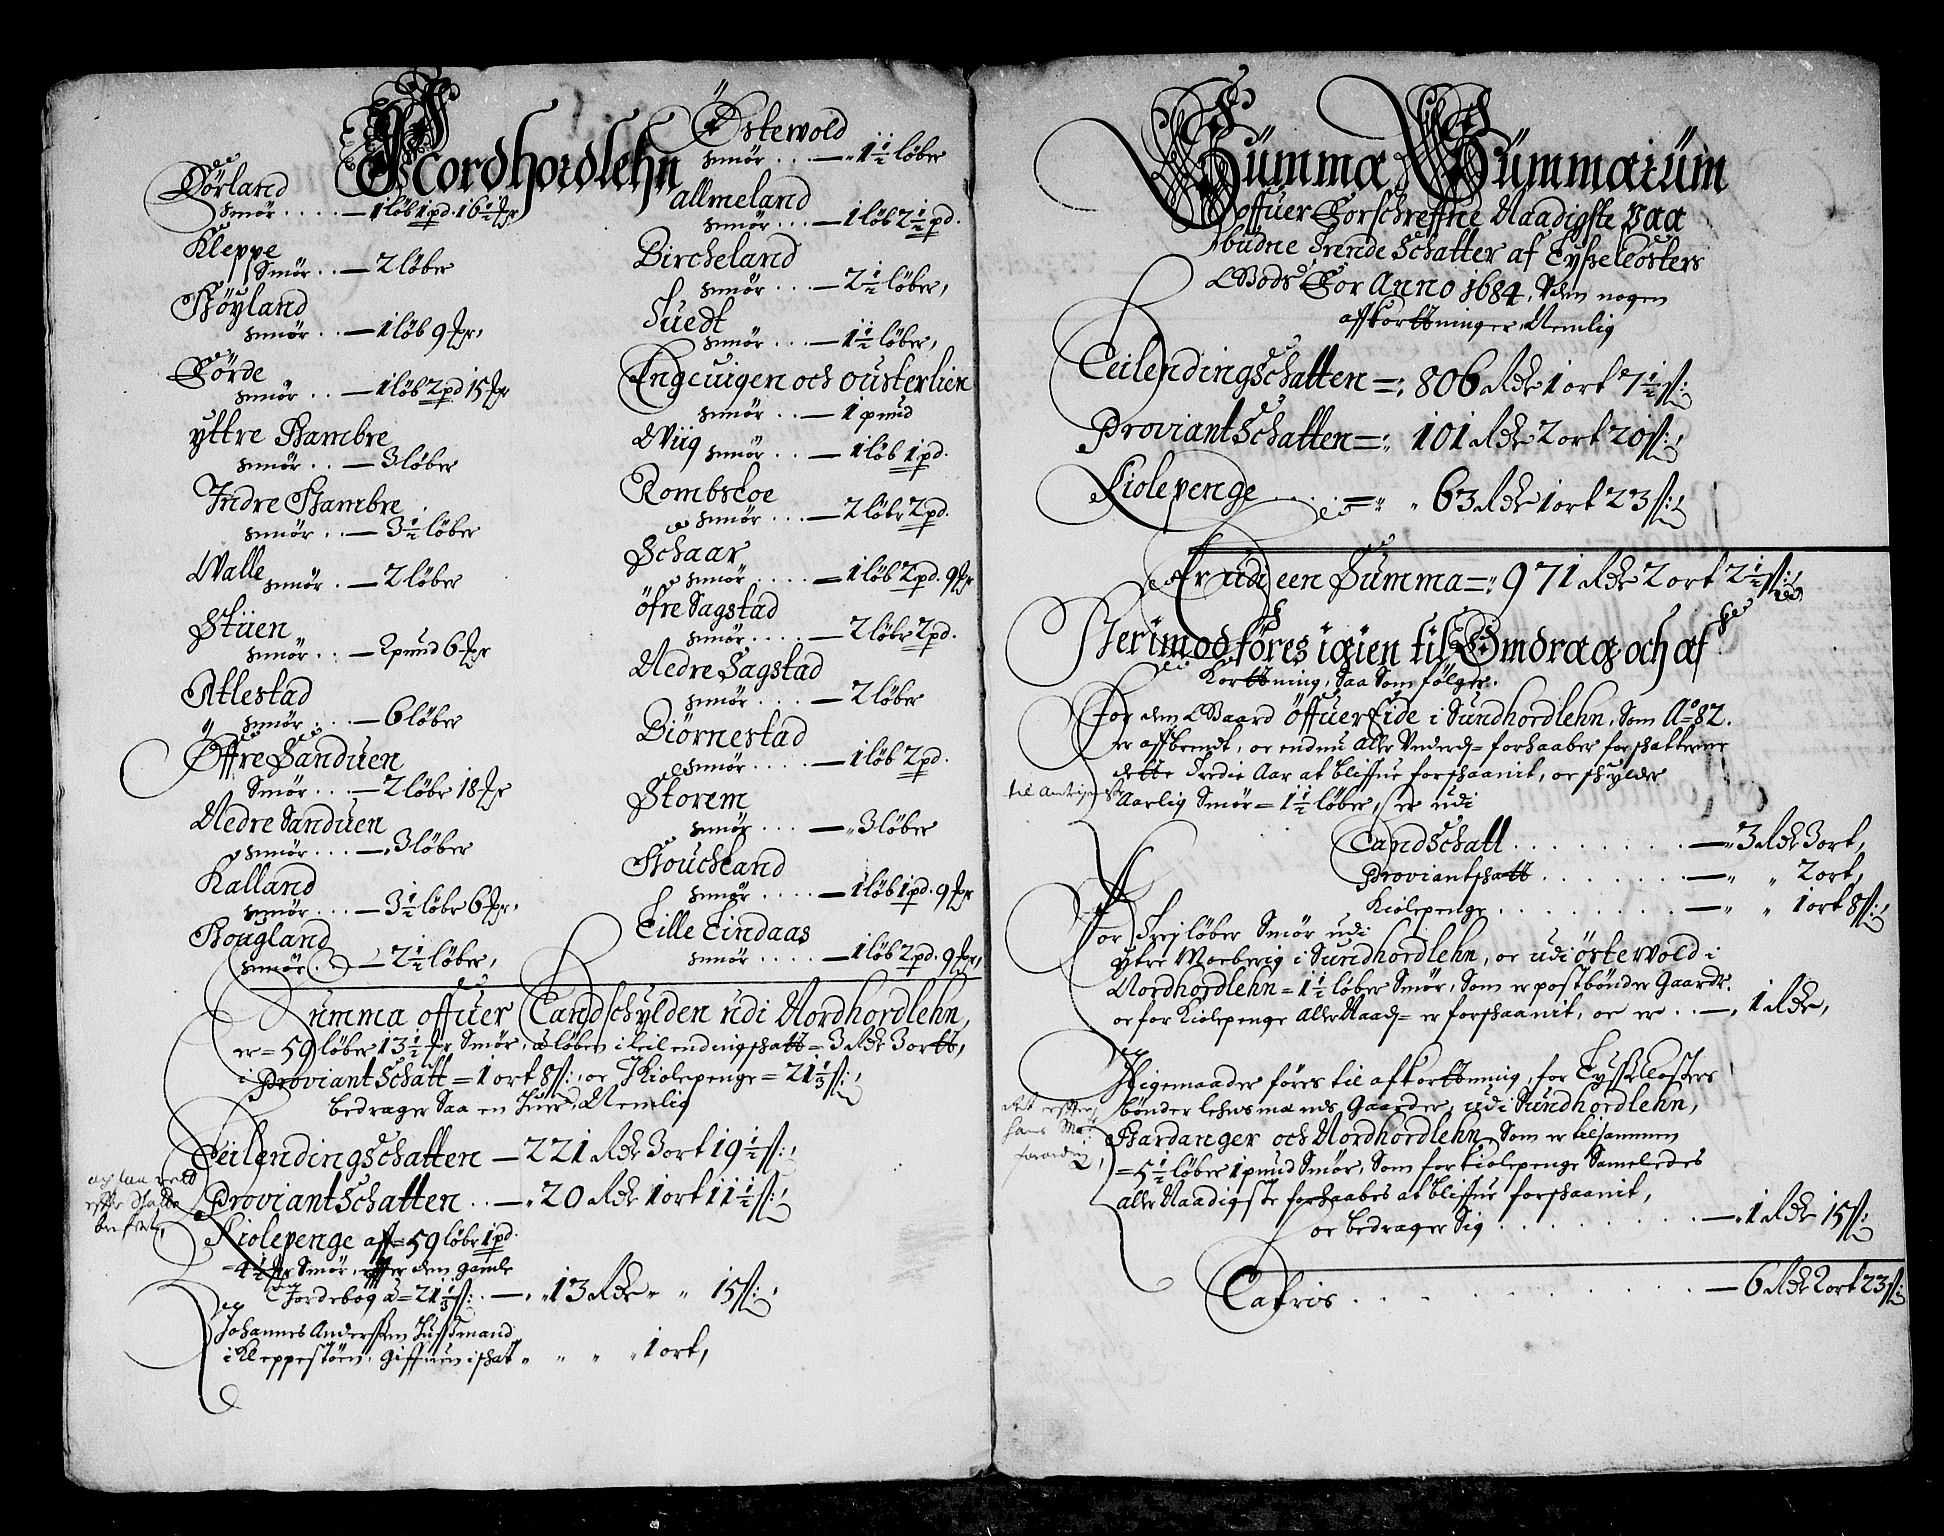 Nordhordlehn
Förland
Smör .... — 1 löb 1 pd. 16½ ¾r
Kleppe
Smör .. — 2 löber
Höyland
Smör .. — 1 löb 9 ¾r,
Förde
Smör .. — 1 löb 2 pd 15 ¾r
yttre Hambre
Smör .. — 3 löber
Indre Hambre
Smör .. — 3½ löber
Walle
Smör . — 2 löber
Stüen
Smör .. — 2 pund 6 ¾r
Atlestad
Smör ... — 6 löber
Öffre Sanduen
Smör ... — 2 löbr 18 ¾r
Nedre Sanduen
Smör ... — 3 löber
Kalland
Smör ... — 3½ löbr 6 ¾r,
Hougland
Smör .. — 2½ löber,
Östewold
Smör ... — 1½ löber
allmeland
Smör ... — 1 löb 2½ pd.
Bircheland
Smör ... — 2½ löber,
Tuedt
Smör ... — 1½ löber,
Ingeuigen och Ousterlien
Smör .. — 1 pund
Wiig Smör .. — 1 löb 1 pd.
Rombsloe
Smör ... — 2 löbr 2 pd.
Schaar
Smör .... — 1 löb 2 pd. 9 ¾r
öfre Sagstad
Smör .... — 2 löbr 2 pd.
Nedre Sagstad
Smör .... — 2 löber
Biörnestad
Smör .... — 1 löb 2 pd.
Storem
Smör .... — 3 löber
Houchland
Smör .... — 1 löb 1 pd. 9 ¾r
Lille Lindaas
Smör .... — 1 löb 2 pd. 9 ¾r,
Summa offuer Landschylden udi Nordhordlehn,
er = 59 löber 13½ ¾r Smör, a löben i Leilendingschatt = 3 Rdr 3 ort,
i Proviant Schatt = 1 ort 8 ß: oc Kiolepenge = 21⅓ ß:
bedrager Saa en huer, Nemlig
Leilendingschatten — 221 Rdr 3 ort 19½ ß:
Proviantschatten .. — 20 Rdr 1 ort 11½ ß:
Kiolepenge aff = 59 löbr 1 pd.
= 4½ ¾r Smör, effter den gamle
Jordebog a = 21⅓ ß: .. — 13 Rdr " " 15 ß:
Johannes Andersen Hussmand
i Kleppestöen, giffuen i schat " " " " 1 ort,
Summa Summarum
offuer Forschreffne Naadigste Paa
budne Trende Schatter af Lysseclosters
Gods For Anno 1684, Uden nogen
affkortninger, Nemlig
Leilendingschatten =: 806 Rdr 1 ort 7½ ß:
Proviantschatten =: 101 Rdr 2 ort 20 ß:
Kiolepenge .... = " " 63 Rdr 1 ort 23 ß:
Er udi een Summa =: 971 Rdr 2 ort 2½ ß:
Herimod föres igien til Omdrag och af
Kortning, Saa Som fölger.
For den Gaard öffuer Eide i Sundhordlehn, Som Ao 82.
er affbrendt, oc endnu aller Underd= forhaaber for schatterne
dette Tredie Aar at bliffue forschaanit, oc schylder
Aarlig Smör = 1½ löber, er udi
Landschatt ........ — " 3 Rdr 3 ort,
Proviantschatt ....... — " " 2 ort,
Kiolepenge ........ — " " 1 ort 8 ß:
For Trej löber Smör udi
ytre Moeberig i Sundhordlehn, oc udi östewold i
Nordhordlehn = 1½ löber Smör, Som er postbönder Gaarde
oc for Kiolepenge Aller Naad= er forschaanit, oc er .. — " 1 Rdr,
Ligemaader föres til afkortning, for Lysseclosters
bönder lehnsmends Gaarder, udi Sundhordlehn,
Hardanger och Nordhordlehn, Som er tilsammen
= 5½ löber 1 pund Smör, Som for Kiolepenge Sameledes
aller Naadigste forhaabes at bliffue forschaanit,
oc bedrager Sig ....... — 1 Rdr 15 ß:
Lateris .......... — 6 Rdr 2 ort 23 ß: